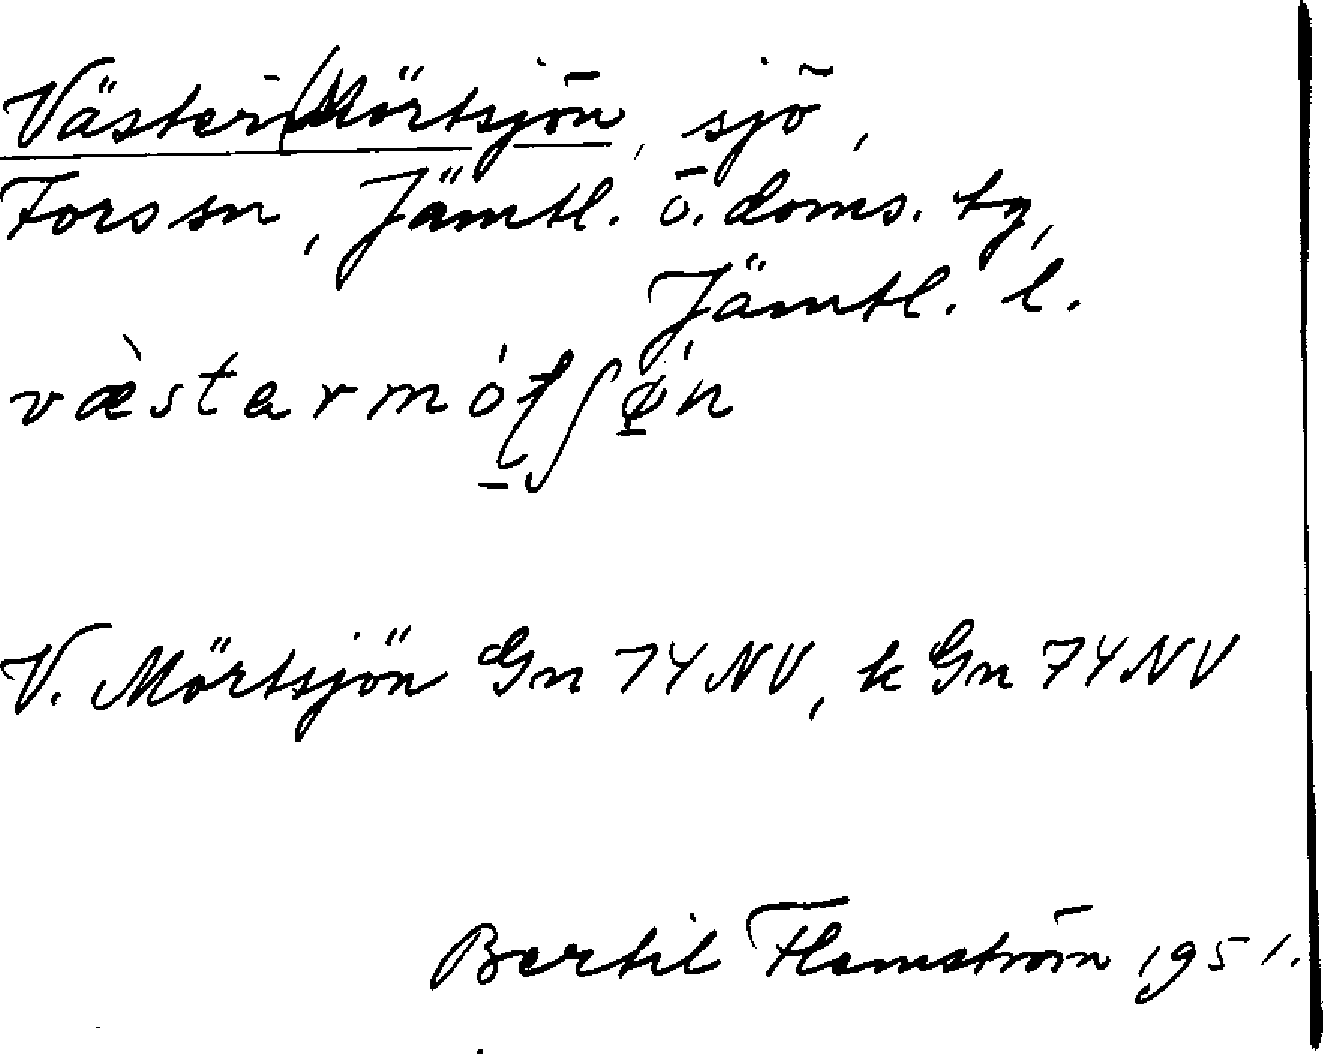 Väster-Mörtsjön, sjö,
Fors sn, Jämtl. ö. doms. tg,
Jämtl. l.
V. Mörtsjön Gn 74 NV, k Gn 74 NV
Bertil Flemström 1951.